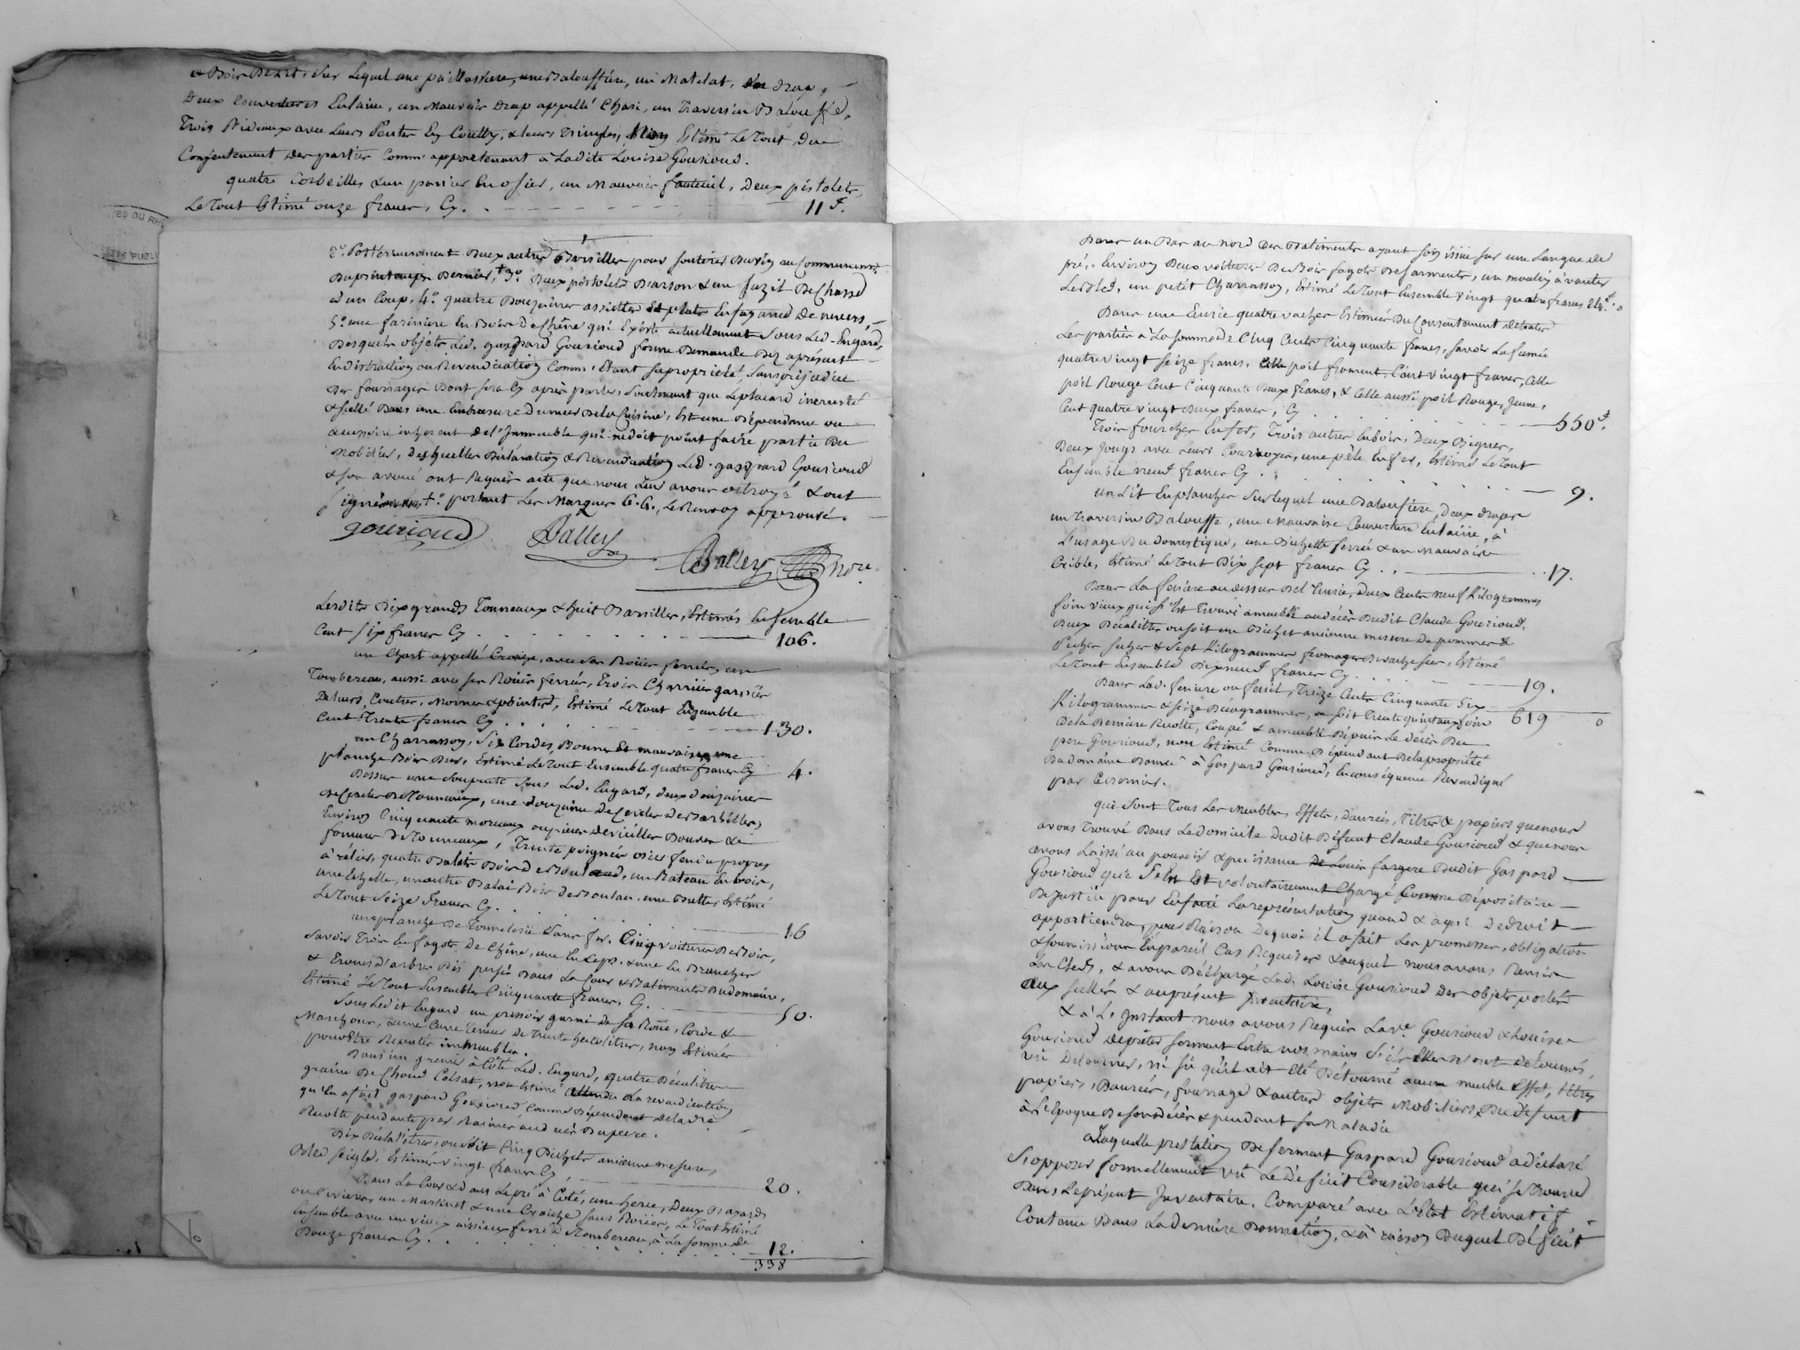 de Bois Blanc, sur lequel une paillassiere, une Balouffiere, un Matelat, un drap,
Deux Couvertures En laine, un Mauvais Drap appellé Chasi, un Traversin Balouffe,
Trois Rideaux avec Leurs Pentes En Coutty, & leurs tringles, Non Estimé Le Tout du
Consentement des parties Comme appartenant à Ladite Louise Gourioud.
quatre Corbeilles & un panier En osier, un Mauvais fauteuil, Deux pistolets,
Le Tout Estimé onze francs, Cy. 11 f.
TES DU RH
2° Postérieurement Deux autres Barilles pour soutirer Du vin au Commencement
Du printemps Dernier, + 3° Deux pistolets D'arson & un fuzil De Chasse
à un Coup, 4° quatre Douzaines assiettes Et plats En fayance De nevers,
5° une fariniere En Bois De Chêne qui Existe actuellement Sous Led. Engard,
Desquels objets Led. gaspard Gourioud forme Demande Dez apresent
En Distraction ou Revendication Comme Etant Sa propriété, Sans préjudice
Des fourrages Dont sera Cy après parlé, Soutenant que Le placard incrusté
& scellé Dans une Embrasure Du mur De la Cuisine, Est une Dépendance ou
accessoire inhérent de l'Immeuble qui ne doit point faire partie Du
Mobilier, Desquelles Déclaration & Revendication Led. gaspard Gourioud
& son avoué ont Requis acte que nous leur avons octroyé & ont
signé + portant Les Marques C. G., Le Renvoy approuvé.
gourioud Balley Balley
Lesdits Six grands Tonneaux & huit Barilles, Estimés Ensemble
Cent Six francs Cy 106.
un Chart appellé Croize, avec Ses Roües ferrées, un
Tombereau, aussi avec ses Roües ferrées, Trois Charrües garnies
De leurs Coutres, Mornes & pointes, Estimé Le Tout Ensemble
Cent Trente francs Cy 130.
un Charrasson, Six Cordes, Bonnes Et mauvaises, une
planche Bois Dur, Estimé Le Tout Ensemble quatre francs Cy 4.
Dessus une Soupente Sous Led. Engard, deux douzaines
De Cercles De Tonneaux, une douzaine De Cercles De Barilles,
Environ Cinquante morceaux ou pieces De vieilles Douves De
fonnure De Tonneaux, Trente poignées osier fendu propres
à rélier, quatre Balets Bois de Boulaud, un Rateau En bois,
une Echelle, un autre Balai Bois De Boulau, une Butte, Estimé
Le Tout Seize francs Cy 16
une planche De Tourelisié Sans fer, Cinq voitures De Bois,
Savoir Trois En fagots De Chêne, une En Ceps, & une En Branches
& Troncs d'arbre Dis persés Dans La Cour & Batiments Du domaine,
Estimé Le Tout Ensemble Cinquante francs, Cy 50.
Sous Ledit Engard un pressoir garni De Sa Roüe, Corde &
Manchons, & une Cuve Tenue De Trente hectolitres, non Estimés
pour être Réputés immeubles.
Dans un grenier à Côté Led. Engard, quatre Décalitres
graine De Choux Colsat, non Estimé attendu La revendication
qu'en a fait gaspard Gourioud Comme Dépendant De la dte
Recolte pendante par Racines au décès Du pere.
Dix Décalitres, ou Soit Cinq Bichets ancienne mesure,
Bled Seigle, Estimés vingt francs Cy 20.
Dans La Cour & Dans Le pré à Coté, une herse, Deux Bayards
ou Civieres, un Martinet & une Croize Sans Roües, Le Tout Estimé
Ensemble avec un vieux aissieux ferré De Tombereau, à La Somme de
Douze francs Cy 12.
338
Dans un Bas au nord Des Batiments ayant Son issüe Sur une Langue de
pré, Environ Deux voitures De Bois fagots De sarments, un moulin à vanter
Le Bled, un petit Charrasson, Estimé Le Tout Ensemble Vingt quatre francs 24 f. 0
Dans une Ecurie quatre vaches Estimées Du Consentement de toutes
Les parties à La Somme De Cinq Cents Cinquante francs, Savoir La fumée
quatre vingt Seize francs, Celle poil froment, Cent vingt francs, Celle
poil Rouge Cent Cinquante Deux francs, & Celle aussi poil Rouge, Jeune,
Cent quatre vingt Deux francs, Cy 550 f.
Trois fourches En fer, Trois autres En bois, Deux Bignes,
Deux Jougs avec Leurs Courroyes, une pêle En fer, Estimé Le Tout
Ensemble neuf francs Cy 9.
un Lit En planches Sur Lequel une Balouffiere, Deux draps
un Traversin Balouffe, une Mauvaise Couverture En laine, à
L'usage Du Domestique, une Bichette ferrée & un Mauvais
Crible, Estimé Le Tout Dix Sept francs Cy 17.
Dans La feniere au dessus De L'Ecurie, Deux Cents neuf Kilogrammes
foin vieux qui S'Est Trouvé ameublé au décès Dudit Claude Gourioud,
Deux Décalitres ou soit un Bichet ancienne mesure De pommes &
Peches Seches & Sept Kilogrammes fromages De vache Sec, Estimé
Le Tout Ensemble Dix neuf francs Cy 19.
619 0
Dans Lad. feniere ou fenil, Treize Cents Cinquante Six
Kilogrammes & Seize Décagrammes, ou soit Trente quintaux foin
De la Derniere Recolte, Coupé & ameublé Depuis Le décès Du
pere Gourioud, non Estimé Comme Dépendant De la propriété
Du domaine Donné à Gaspard Gourioud, En conséquence Revendiqué
par Ce Dernier.
qui Sont Tous Les Meubles, Effets, Danrées, Titres & papiers que nous
avons Trouvé Dans Le domicile Dudit Défunt Claude Gourioud & que nous
avons Laissé au pouvoir & puissance De Louis fargere Dudit Gaspard
Gourioud qui S'en Est volontairement Chargé Comme Dépositaire
De Justice pour En faire La représentation quand & à qui De droit
appartiendra, pour Raison De quoi il a fait Les promesses, obligations
& Soumissions En pareil Cas Requises & auquel nous avons Remis
Les Clefs, & avons Déchargé Lad. Louise Gourioud Des objets portés
aux scellés & au présent Inventaire,
& à L'Instant nous avons Requis La ve Gourioud & Louise
Gourioud De prêter serment Entre nos mains Si Elles N'ont Détourné,
vu Detourner, ni Sû qu'il ait Eté Détourné aucun meuble Effet, titres
papiers, Danrées, fourrage & autres objets Mobiliers Du défunt
à L'Epoque De Son décès & pendant Sa Maladie
à Laquelle prestation De serment Gaspard Gourioud a déclaré
S'opposer formellement vû Le Déficit Considérable qui Se Trouve
Dans Le présent Inventaire, Comparé avec L'Etat Estimatif
Contenu Dans La Derniere Donnation, & à raison Duquel Déficit